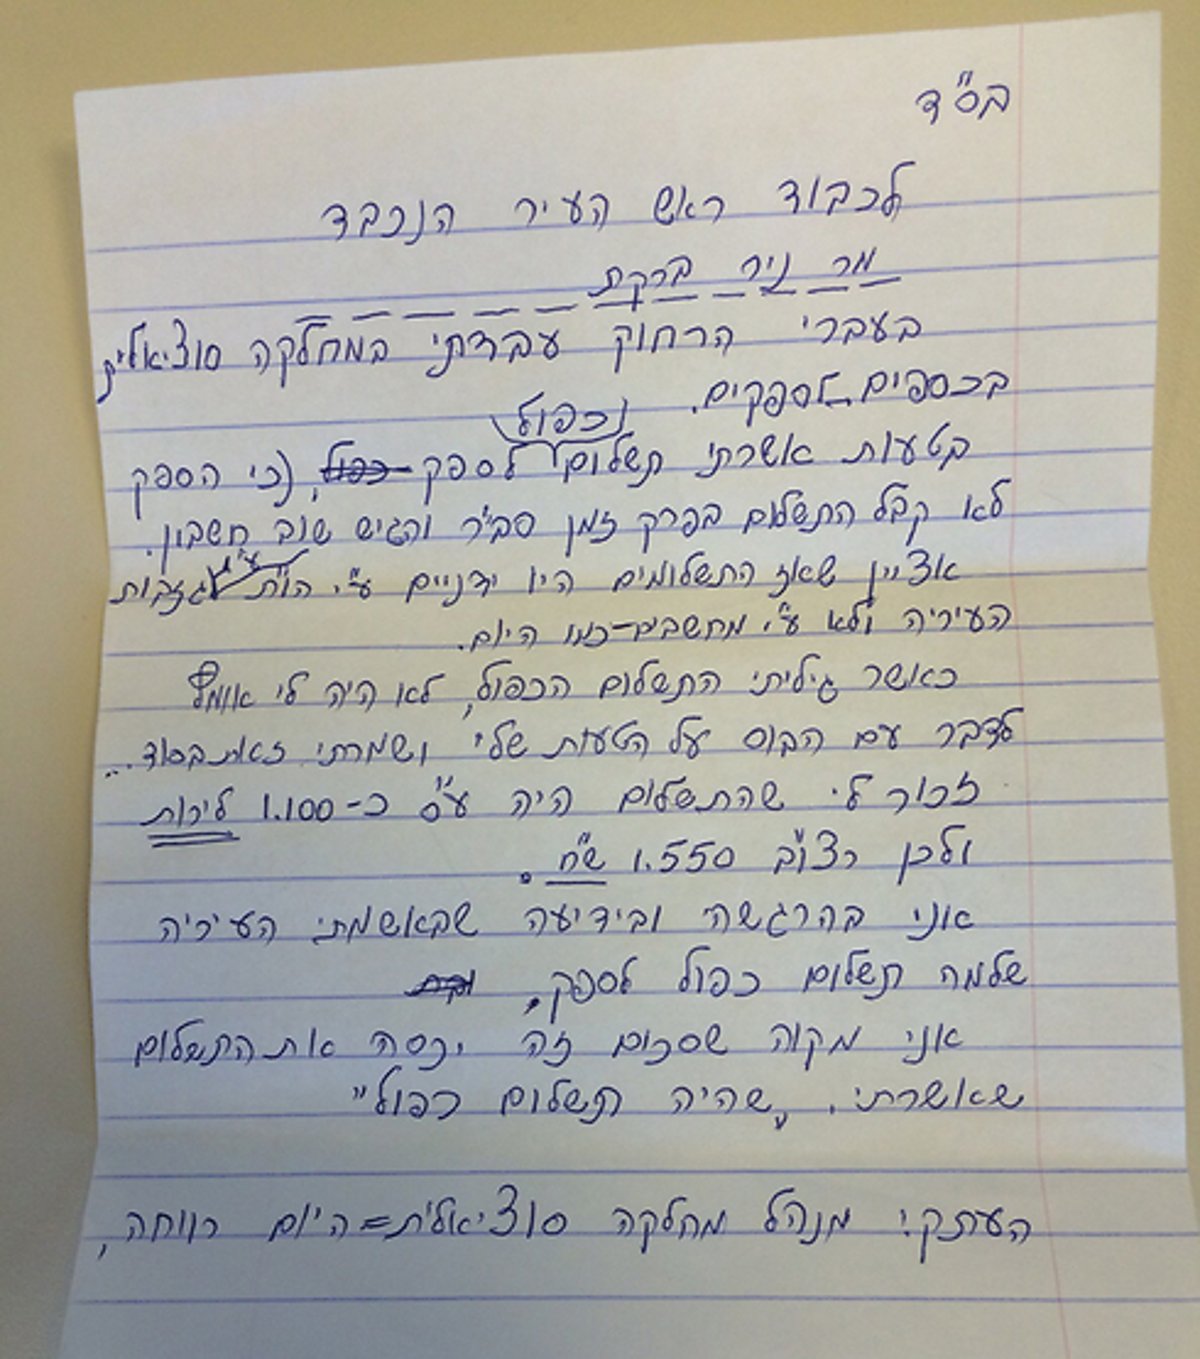 בס"ד
לכבוד ראש העיר הנכבד
מר ניר ברקת
בעברי הרחוק עבדתי במחלקה סוציאלית
בכספים לספקים.
כפול
בטעות אשרתי תשלום לספק כפול, (כי הספק
לא קבל התשלום בפרק זמן סביר והגיש שוב חשבון.
אציין שאז התשלומים היו ידניים ע"י הו"ת ע"י גזברות
העיריה ולא ע"י מחשבים-כמו היום.
כאשר גיליתי התשלום הכפול, לא היה לי אומץ
לדבר עם הבוס על הטעות שלי ושמרתי זאת בסוד...
זכור לי שהתשלום היה ע"ס כ-1.100 לירות
ולכן רצ"ב 1.550 ש"ח.
אני בהרגשה ובידיעה שבאשמתי העיריה
שלמה תשלום כפול לספק,
אני מקוה שסכום זה יכסה את התשלום
שאשרתי. "שהיה תשלום כפול"
העתק: מנהל מחלקה סוציאלית=היום רווחה,